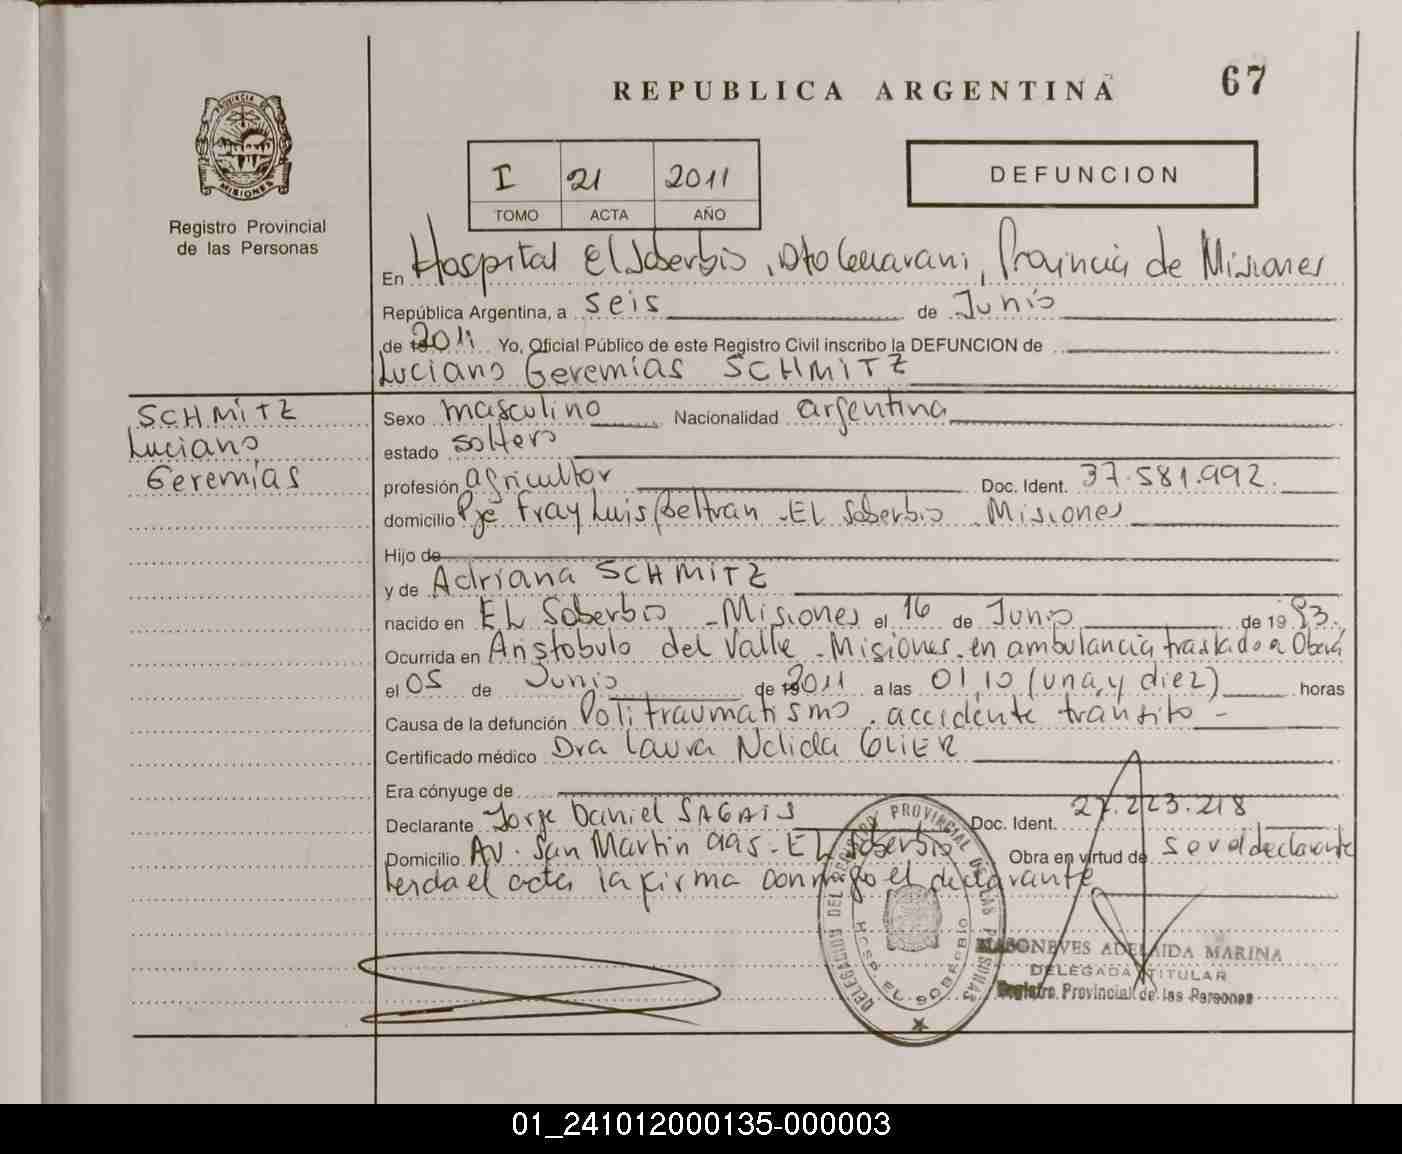 REPUBLICA ARGENTINA
67
PROVINCIA DE
MISIONES
Registro Provincial
de las Personas
I 21 2011
TOMO ACTA AÑO
DEFUNCION
En Hospital El Soberbio, Dto Guarani, Provincia de Misiones
República Argentina, a seis de Junio
de 2011 Yo, Oficial Público de este Registro Civil inscribo la DEFUNCION de
Luciano Geremías SCHMITZ
SCHMITZ
Luciano
Geremías
Sexo masculino Nacionalidad argentina
estado soltero
profesión agricultor Doc. Ident. 37.581.992.
domicilio Pje Fray Luis Beltran - EL Soberbio - Misiones
Hijo de
y de Adriana SCHMITZ
nacido en EL Soberbio - Misiones el 16 de Junio de 1993.
Ocurrida en Aristobulo del Valle - Misiones - en ambulancia traslado a Oberá
el 05 de Junio de 2011 a las 01,10 (una, y diez) horas
Causa de la defunción Politraumatismo. accidente transito -
Certificado médico Dra Laura Nelida GLIER
Era cónyuge de
Declarante Jorge Daniel SAGAIS Doc. Ident. 27.223.218
Domicilio Av. San Martin aas - EL Soberbio Obra en virtud de ser el declarante
leida el acta la firma conmigo el declarante
DELEGACION DEL REGISTRO PROVINCIAL DE LAS PERSONAS
HOSP. EL SOBERBIO
ADELAIDA MARINA
DELEGADA TITULAR
Registro Provincial de las Personas
01_241012000135-000003